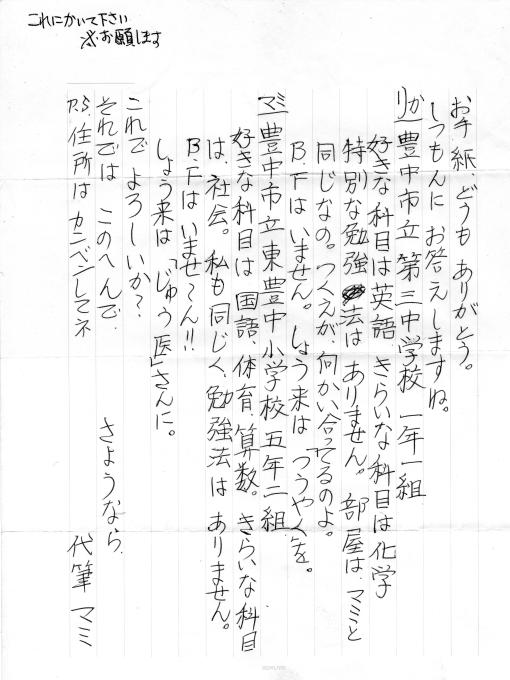 これにかいて下さい
お願します
お手紙、どうも ありがとう。
しつもんに お答えしますね。
リカ 豊中市立 第三中学校 一年一組
好きな科目は英語 きらいな科目は化学
特別な勉強法は ありません。 部屋は、マミと
同じなの。つくえが、向かい合ってるのよ。
B.Fは いません。 しょう来は つうやくを。
マミ 豊中市立東豊中小学校 五年二組
好きな科目は 国語、体育、算数。 きらいな科目
は、社会。 私も同じく、勉強法は ありません。
B.Fは いませ〜ん!!
しょう来は、「じゅう医」さんに。
これで よろしいか?
それでは このへんで、 さようなら、
P.S. 住所は カンベンしてネ 代筆 マミ
KOKUYO